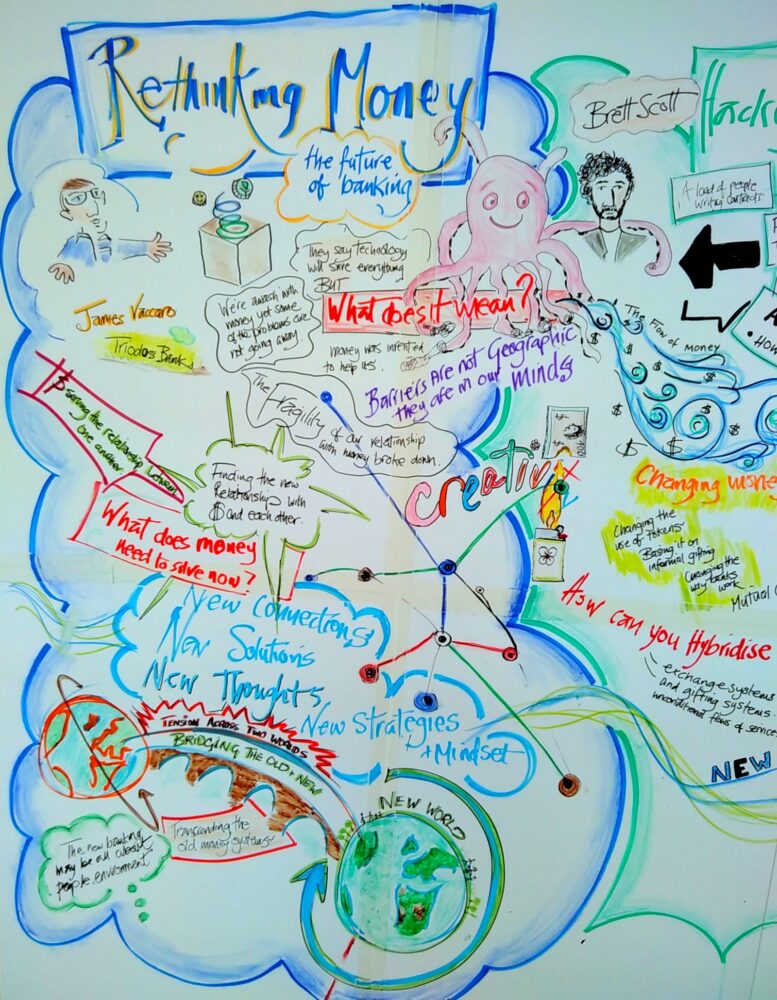 Rethinking Money
the future
of banking
They say technology
will solve everything
BUT
We're awash with
money yet some
of the problems are
not going away.
What does it mean?
money was invented
to help us.
Barriers are not Geographic
they are in our minds
James Vaccaro
Triodos Bank
The Fragility
of our relationship
with money broke down.
the relationship between
one another
Finding the new
Relationship with
$ and each other.
What does money
need to solve now?
creativ
New Connections
New Solutions
New Thoughts
New Strategies
+ Mindset
TENSION ACROSS TWO WORLDS
BRIDGING THE OLD + NEW
Transcending the
old money systems
NEW WORLD
The new banking
may be all about
people, environment
Brett Scott
Hack
A load of people
writing contracts
The Flow of Money
$
$
$
$
$
$
$
Changing money
Changing the
use of tokens
Basing it on
informal gifting
Changing the
way banks
work
Mutual
How can you Hybridise
exchange systems
and gifting systems
unconditional flows of services
NEW